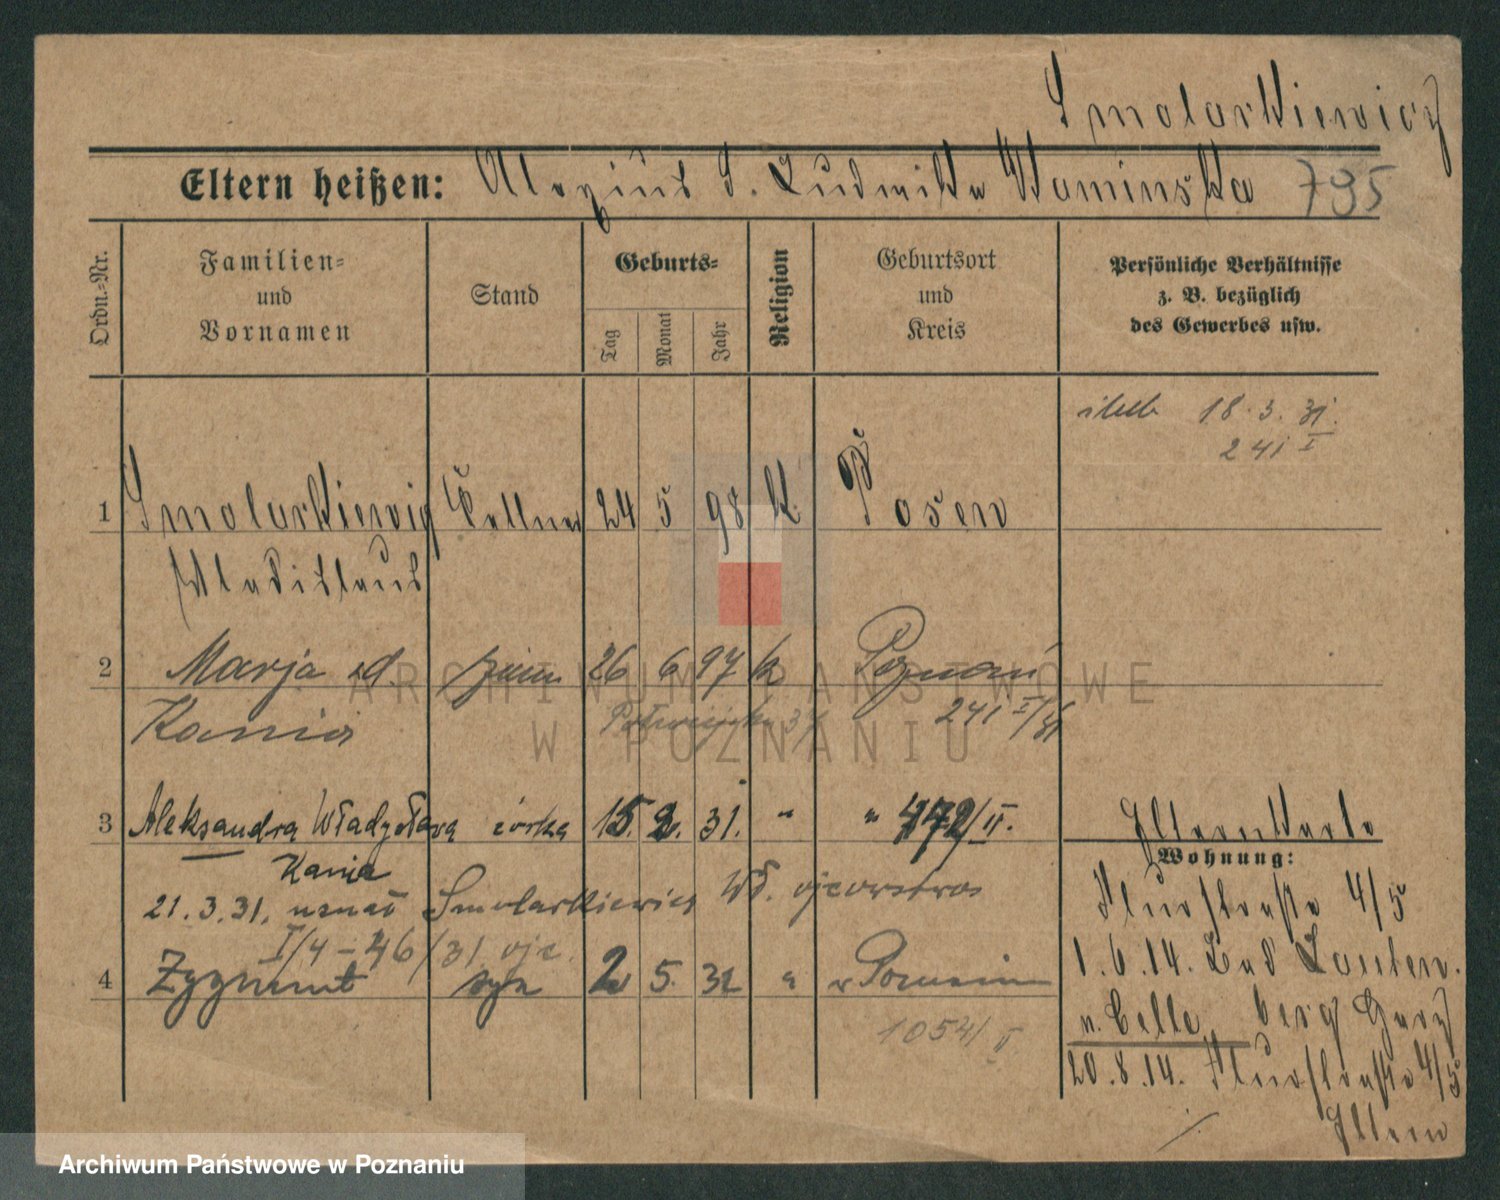 Smolarkiewicz
Eltern heißen: Alexius d. Ludmilla Kaminska 795
Ordn.-Nr.
Familien-
und
Vornamen
Stand
Geburts-
Tag
Monat
Jahr
Religion
Geburtsort
und
Kreis
Persönliche Verhältnisse
z. B. bezüglich
des Gewerbes usw.
ślub 18.3.31.
241 I
1 Smolarkiewicz Kellner 24 5 98 k. Posen
Wladislaus
2 Marja d. żona 26 6 97 k Poznań
Kania 37 241 I/31
3 Aleksandra Władysława córka 15. 2. 31. " " 472/II.
Kania
21.3.31. uznał Smolarkiewicz Wł. ojcowstwo
I/4-46/31
4 Zygmunt syn 2 5. 32 " w Poznaniu
1054/II
Elternkarte
Wohnung:
4/5
1.6.14. Bad Lauten-
n. Celle berg Harz
20.8.14. 4/5
Eltern
ARCHIWUM PAŃSTWOWE
W POZNANIU
Archiwum Państwowe w Poznaniu